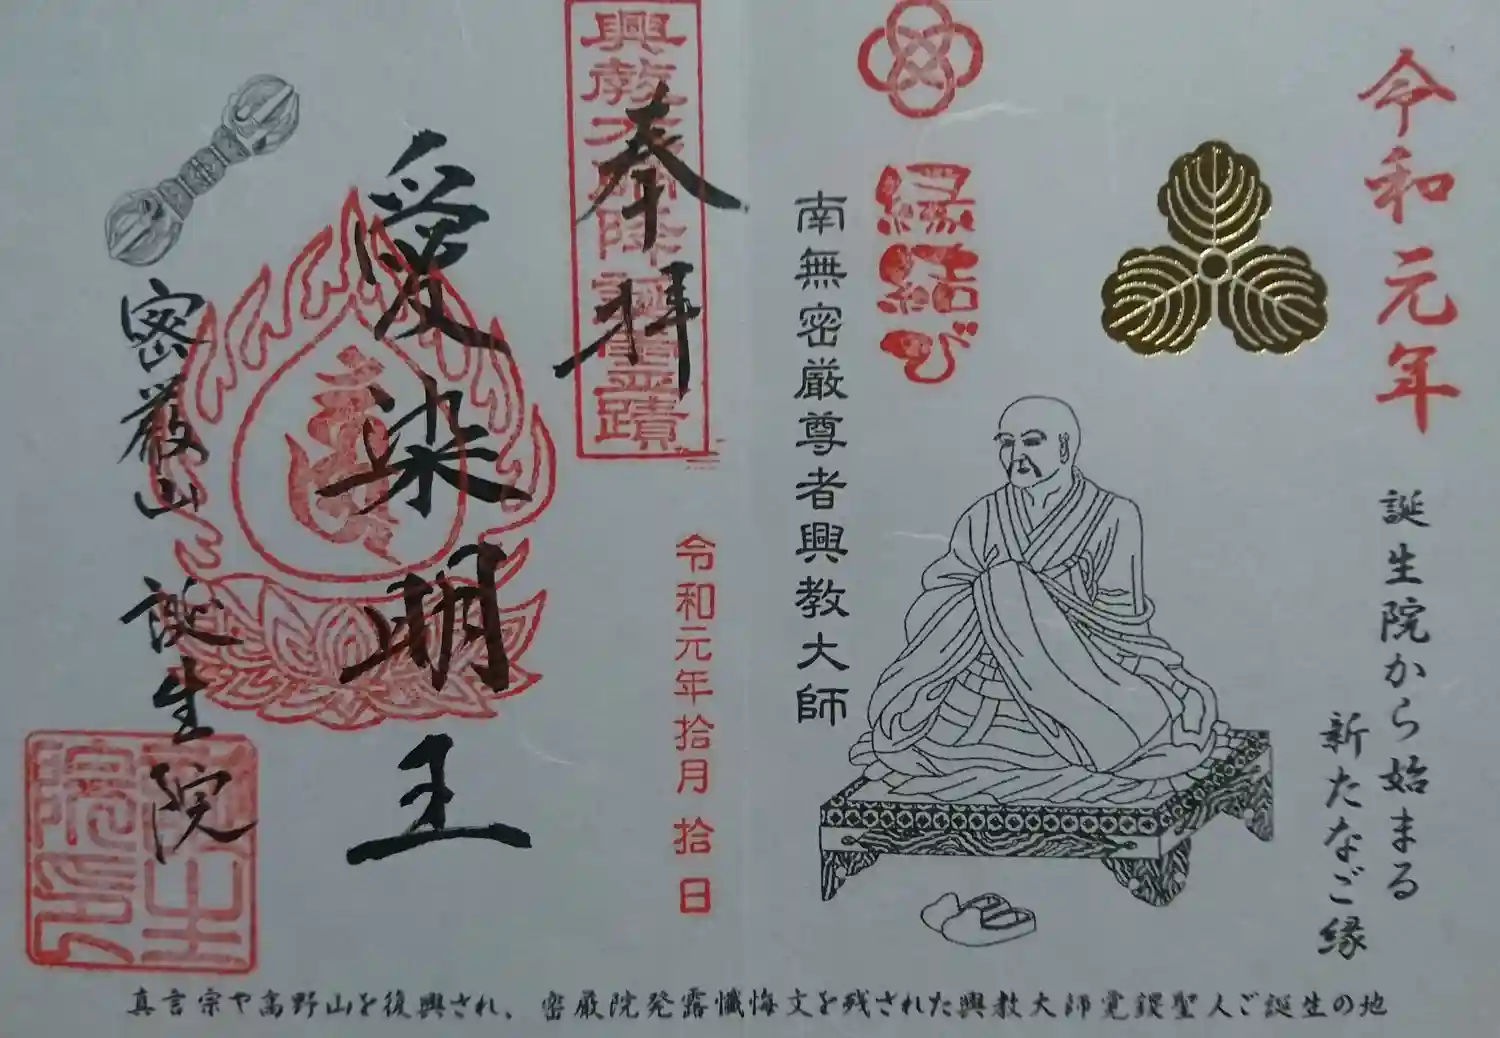 令和元年
誕生院から始まる
新たなご縁
縁結び
南無密厳尊者興教大師
奉拝
興教大師降誕霊蹟
令和元年拾月拾日
愛染明王
密厳山 誕生院
真言宗や高野山を復興され、密厳院発露懺悔文を残された興教大師覚鑁聖人ご誕生の地